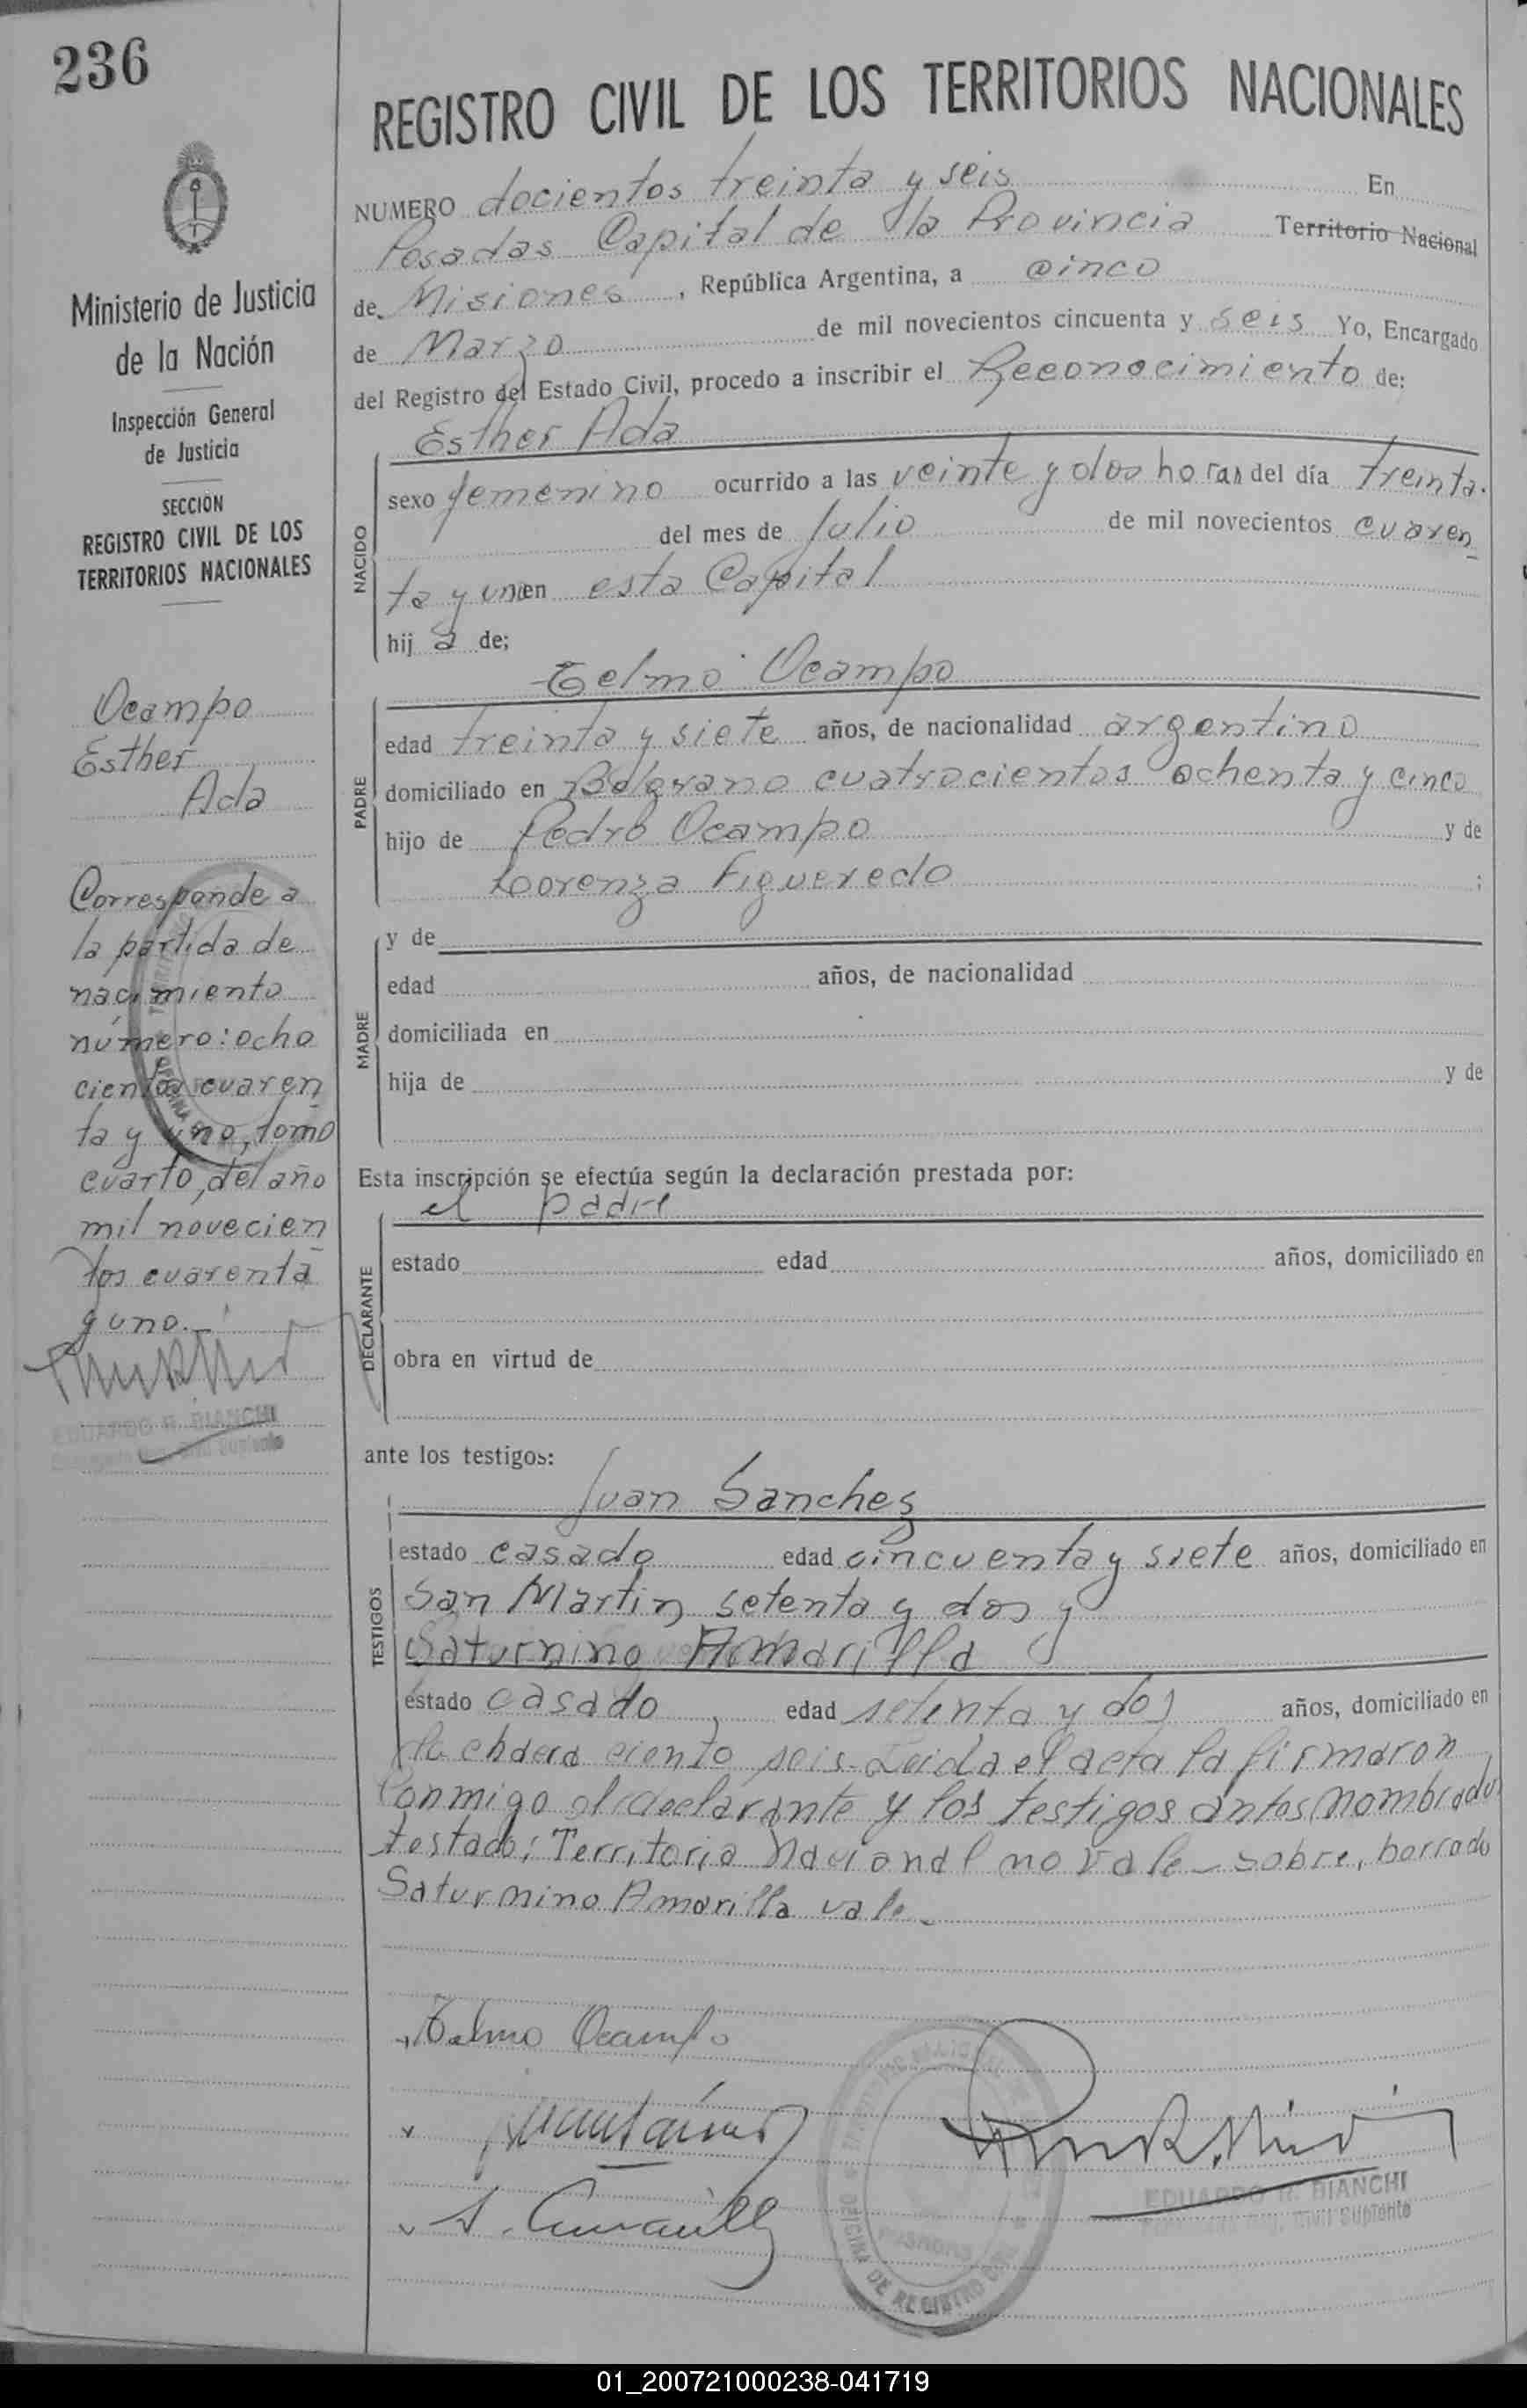 236
REGISTRO CIVIL DE LOS TERRITORIOS NACIONALES
Ministerio de Justicia
de la Nación
Inspección General
de Justicia
SECCIÓN
REGISTRO CIVIL DE LOS
TERRITORIOS NACIONALES
Ocampo
Esther
Ada
Corresponde a
la partida de
nacimiento
número: ocho
cientos cuaren
ta y uno, tomo
cuarto, del año
mil novecien
tos cuarenta
y uno.-
EDUARDO R. BIANCHI
Suplente
NUMERO docientos treinta y seis En
Posadas Capital de la Provincia Territorio Nacional
de Misiones, República Argentina, a cinco
de Marzo de mil novecientos cincuenta y seis Yo, Encargado
del Registro del Estado Civil, procedo a inscribir el Reconocimiento de:
NACIDO
Esther Ada
sexo femenino ocurrido a las veinte y dos horas del día treinta.
del mes de Julio de mil novecientos cuaren
ta y uno en esta Capital
hij a de;
PADRE
Telmo Ocampo
edad treinta y siete años, de nacionalidad argentino
domiciliado en Belgrano cuatrocientos ochenta y cinco
hijo de Pedro Ocampo y de
Lorenza Figueredo ;
MADRE
y de
edad años, de nacionalidad
domiciliada en
hija de y de
Esta inscripción se efectúa según la declaración prestada por:
DECLARANTE
el padre
estado edad años, domiciliado en
obra en virtud de
ante los testigos:
TESTIGOS
Juan Sanchez
estado casado edad cincuenta y siete años, domiciliado en
San Martin setenta y dos y
Saturnino Amarilla
estado casado edad setenta y dos años, domiciliado en
la chacra ciento seis-Leida el acta la firmaron
Conmigo el declarante y los testigos antes nombrados
testado: Territorio Nacional no vale - sobre, borrado
Saturnino Amarilla vale.
Telmo Ocampo
S. Amarilla
OFICINA DE REGISTRO
POSADAS
EDUARDO R. BIANCHI
Civil Suplente
01_200721000238-041719